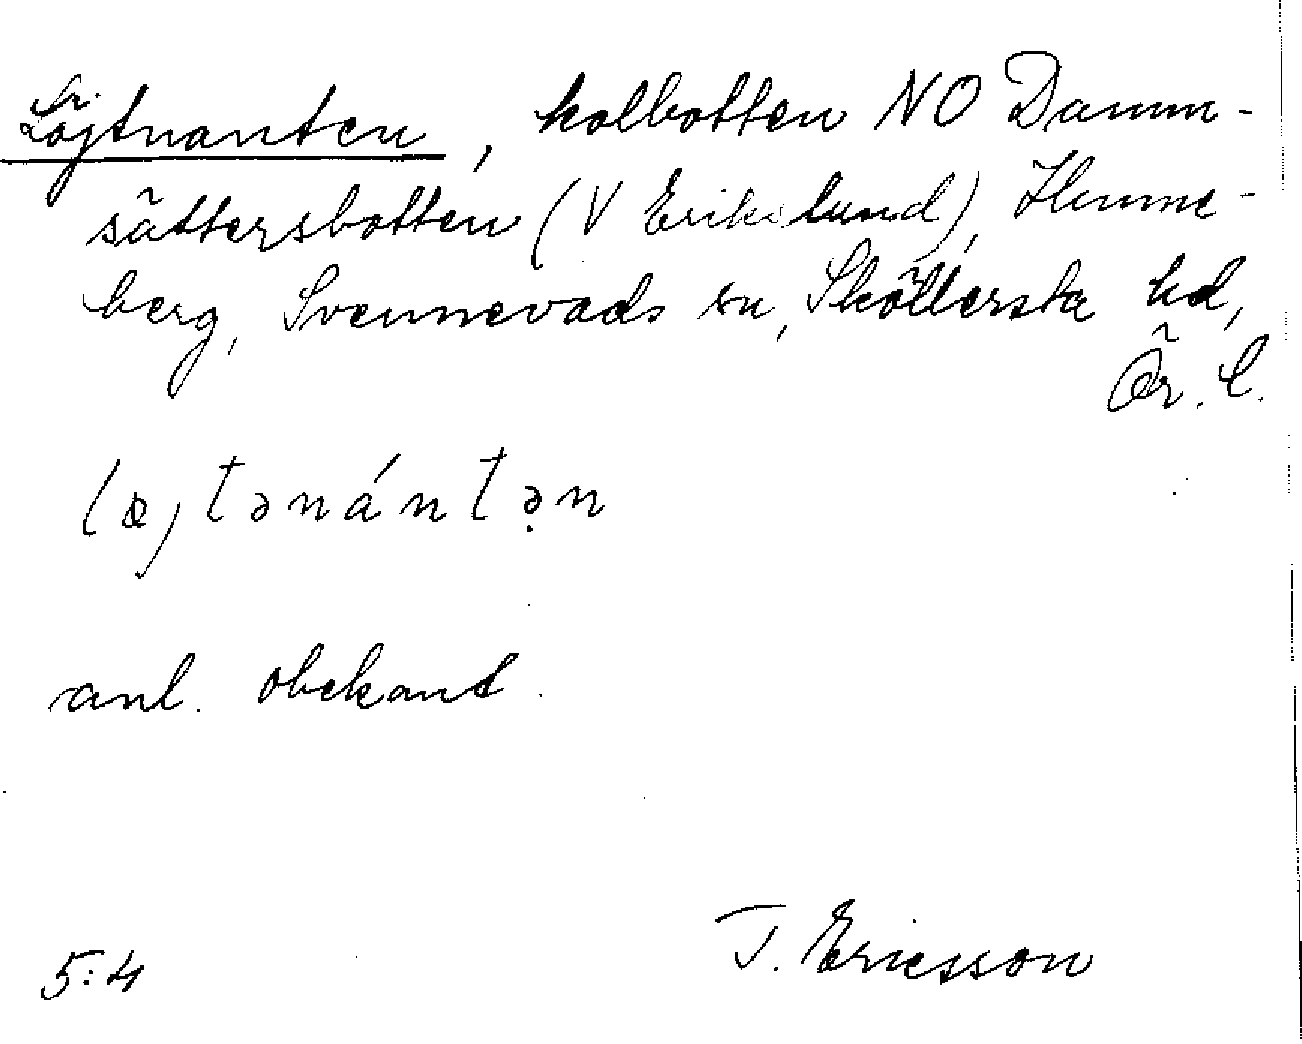 Löjtnanten, kolbotten NO Damm-
sättersbotten (V Erikslund), Hemme-
berg, Svennevads sn, Sköllersta hd,
Ör. l.
lœjtənántən
anl. obekant.
5:4 T. Ericsson